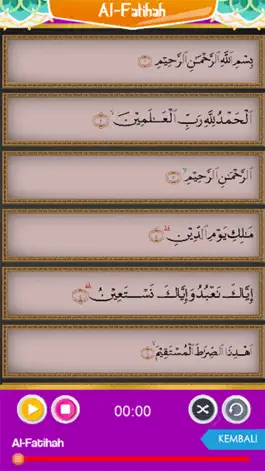 Al-Fatihah
بِسْمِ اللَّهِ الرَّحْمَٰنِ الرَّحِيمِ
الْحَمْدُ لِلَّهِ رَبِّ الْعَالَمِينَ
الرَّحْمَٰنِ الرَّحِيمِ
مَالِكِ يَوْمِ الدِّينِ
إِيَّاكَ نَعْبُدُ وَإِيَّاكَ نَسْتَعِينُ
اهْدِنَا الصِّرَاطَ الْمُسْتَقِيمَ
00:00
Al-Fatihah
KEMBALI